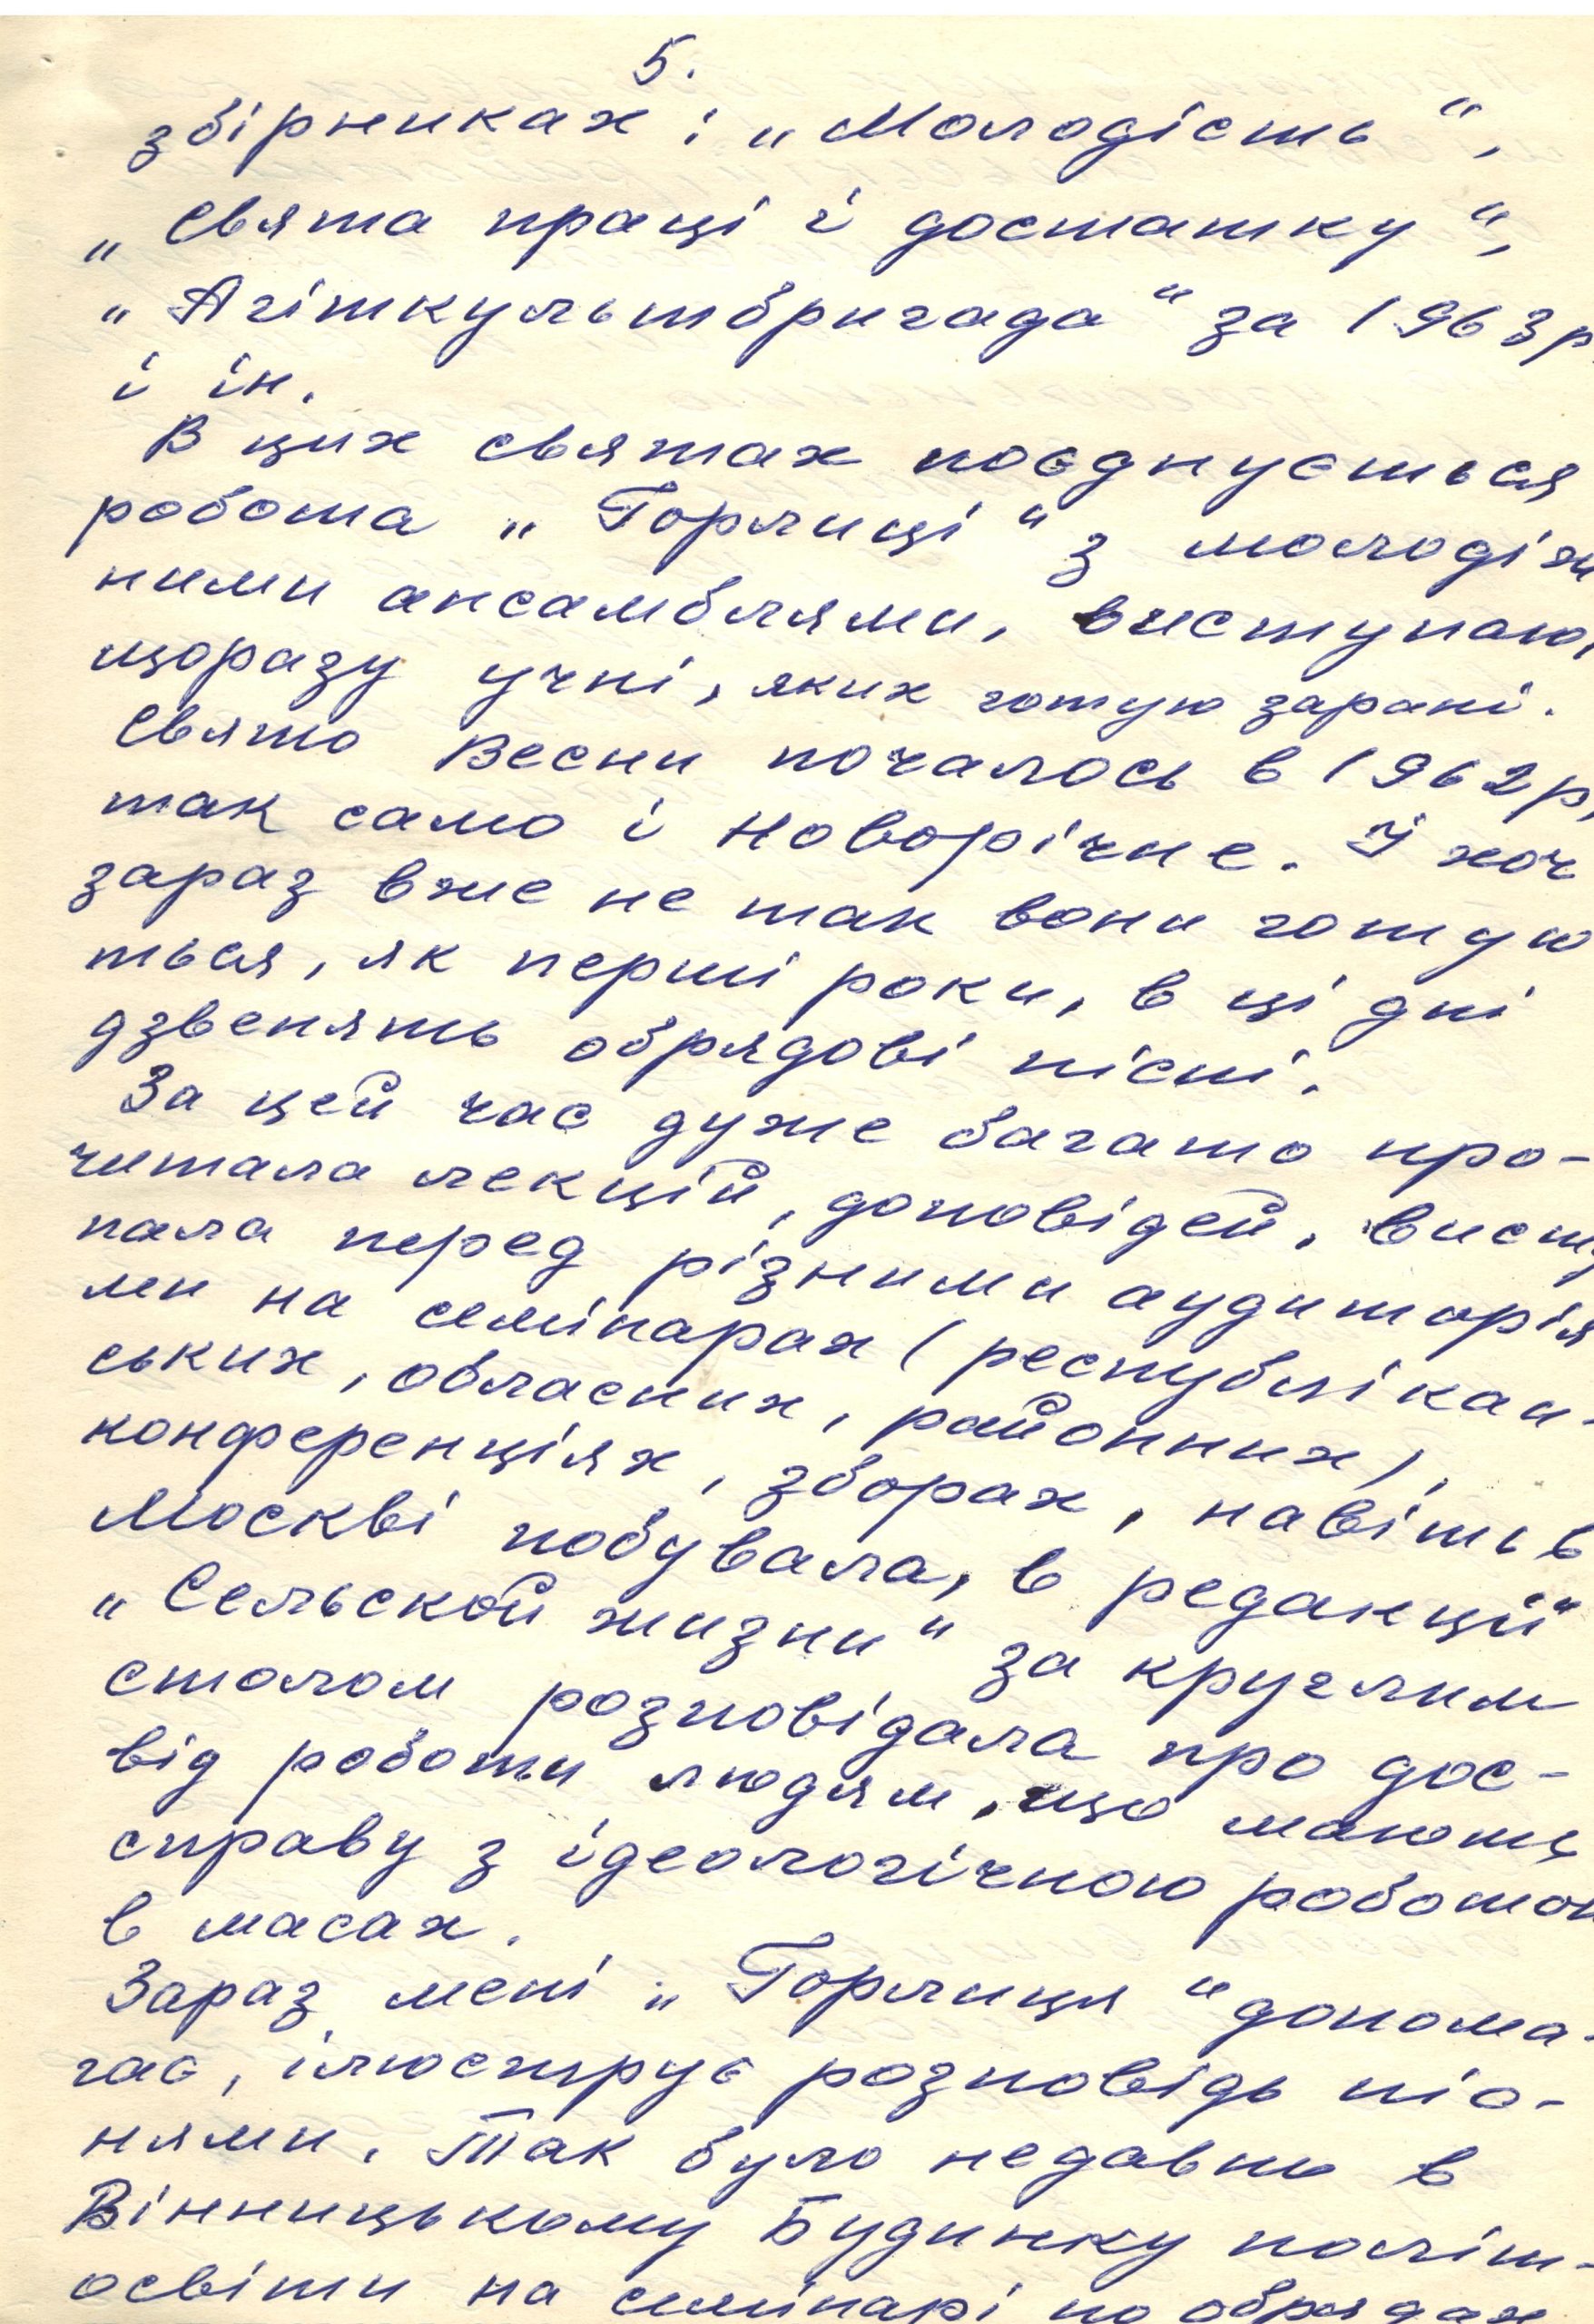 5.
збірниках: „Молодість“,
„Свята праці і достатку“,
„Агіткультбригада“ за 1963р.
і ін.
В цих святах поєднується
робота „Горлиці“ з молодіж
ними ансамблями, виступаю
щоразу учні, яких готую зарані.
Свято Весни почалось в 1962р,
так само і Новорічне. І хоч
зараз вже не так вони готую
ться, як перші роки, в ці дні
дзвенять обрядові пісні.
За цей час дуже багато про-
читала лекцій, доповідей, висту
пала перед різними аудиторія
ми на семінарах (республікан-
ських, обласних, районних),
конференціях, зборах, навіть в
Москві побувала, в редакції
„Сельской жизни“ за круглим
столом розповідала про дос-
від роботи людям, що мають
справу з ідеологічною роботою
в масах.
Зараз мені „Горлиця“ допома-
гає, ілюструє розповідь піс-
нями. Так було недавно в
Вінницькому Будинку політ-
освіти на семінарі по обрядах